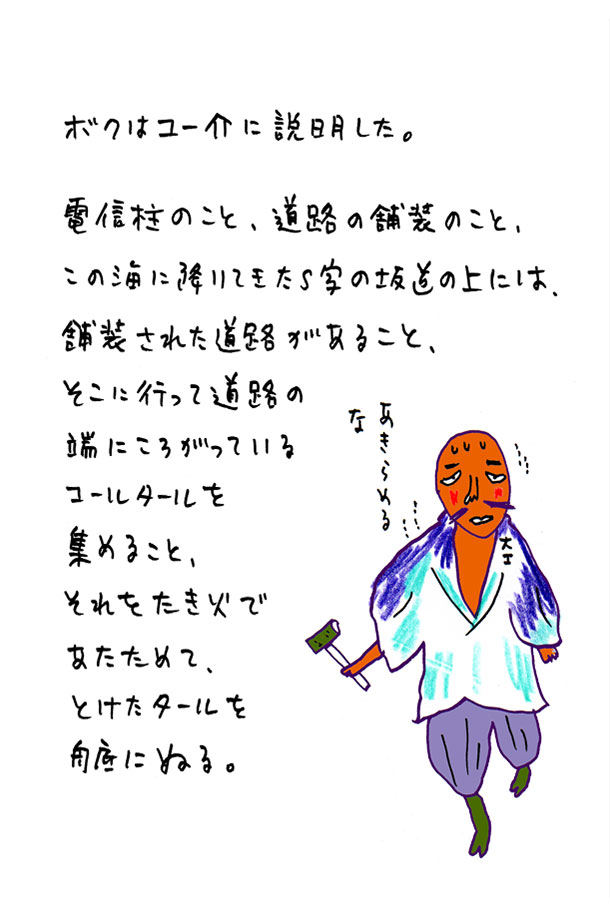 ボクはコー介に説明した。
電信柱のこと、道路の舗装のこと、
この海に降りてきたS字の坂道の上には、
舗装された道路があること、
そこに行って道路の
端にころがっている
コールタールを
集めること、
それをたき火で
あたためて、
とけたタールを
舟底にぬる。
あきらめる
な
大工